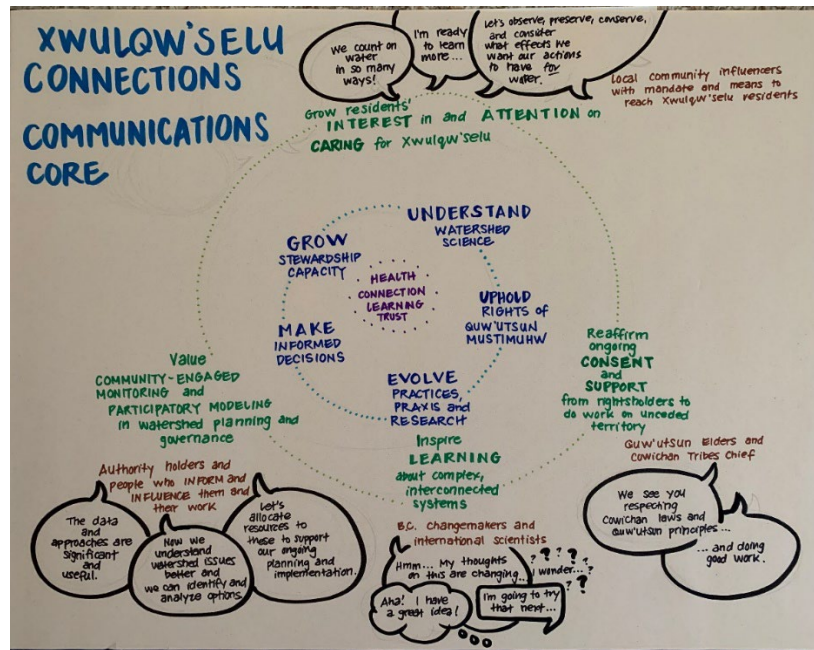 XWULQW'SELU
CONNECTIONS
COMMUNICATIONS
CORE
We count on
water
in so many
ways!
I'm ready
to learn
more...
Let's observe, preserve, conserve,
and consider
what effects we
want our actions
to have for
water.
Local community influencers
with mandate and means to
reach Xwulqw'selu residents
Grow residents'
INTEREST in and ATTENTION on
CARING for Xwulqw'selu
UNDERSTAND
WATERSHED
SCIENCE
GROW
STEWARDSHIP
CAPACITY
HEALTH
CONNECTION
LEARNING
TRUST
UPHOLD
RIGHTS of
QUW'UTSUN
MUSTIMUHW
MAKE
INFORMED
DECISIONS
EVOLVE
PRACTICES,
PRAXIS and
RESEARCH
Reaffirm
ongoing
CONSENT
and
SUPPORT
from rightsholders to
do work on unceded
territory
Value
COMMUNITY-ENGAGED
MONITORING and
PARTICIPATORY MODELING
in watershed planning and
governance
Inspire
LEARNING
about complex,
interconnected
systems
Quw'utsun Elders and
Cowichan Tribes Chief
We see you
respecting
Cowichan laws and
Quw'utsun principles...
...and doing
good work.
Authority holders and
people who INFORM and
INFLUENCE them and
their work
The data
and
approaches are
significant
and
useful.
Now we
understand
watershed issues
better and
we can identify and
analyze options.
Let's
allocate
resources to
these to support
our ongoing
planning and
implementation.
B.C. Changemakers and
international scientists
Hmm... My thoughts
on this are changing...
I wonder...?
? ? ? ? ? ?
Aha! I have
a great idea!
I'm going to try
that next...